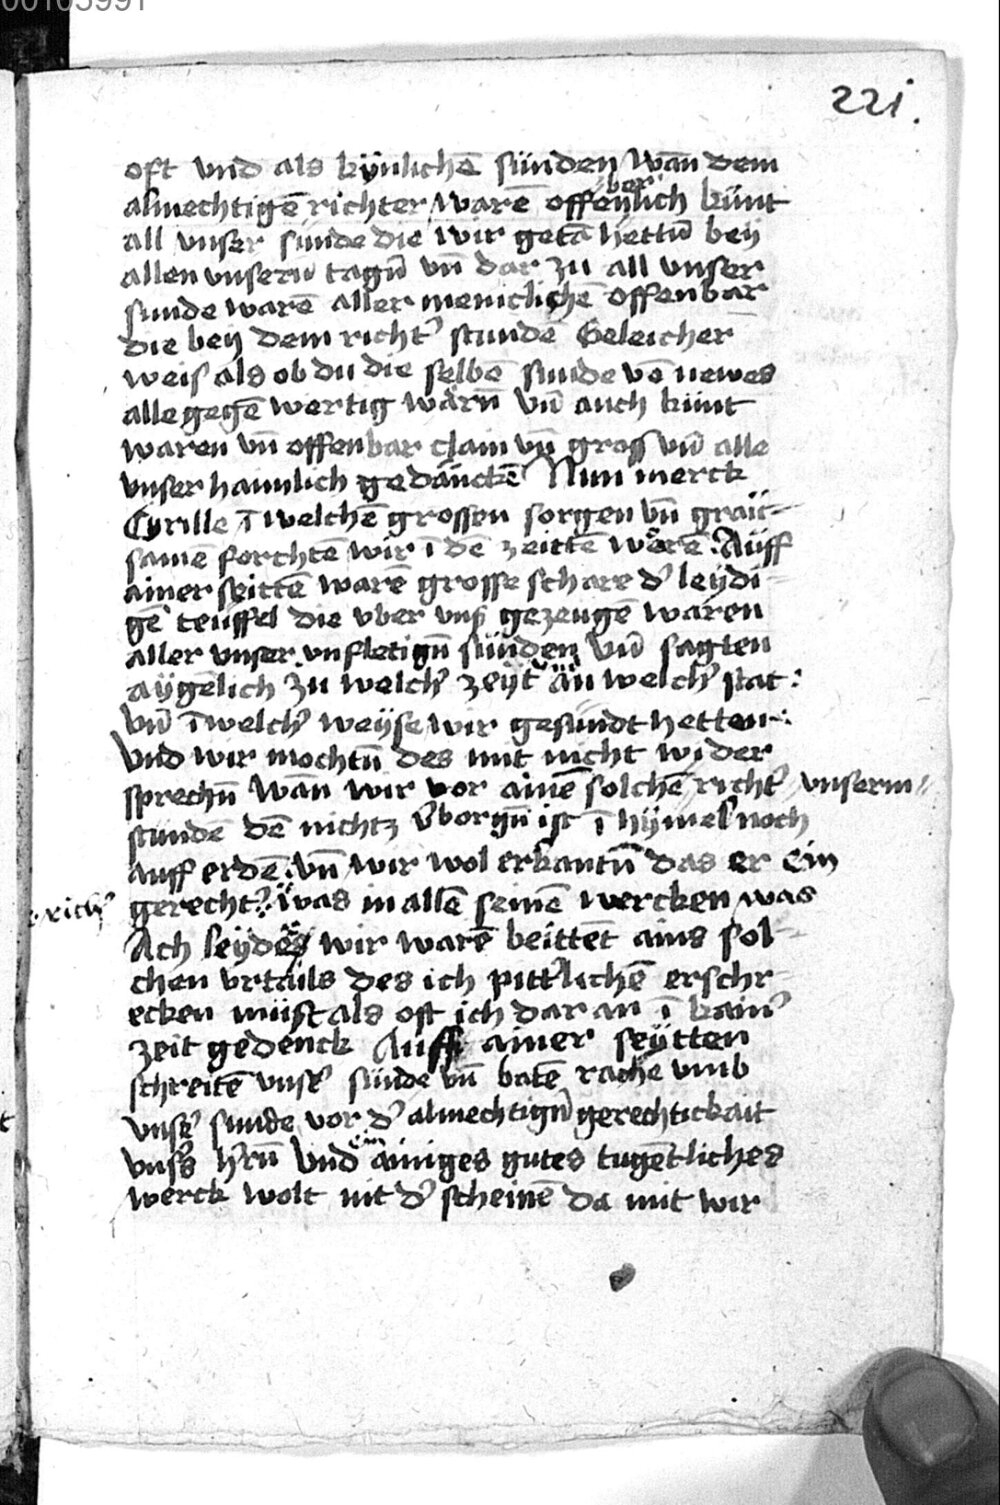 00105991
221.
oft vnd als künlichē sünden wān dem
almechtigē richter warē offenberlich künt
all vnser sünde die wir getā hettū bey
allen vnsern tagū vn̄ dar zu all vnser
sunde warē aller meniclichē offenbar
die bey dem richt' stundē Geleicher
weis als ob du die selbē sunde vō newes
alle gegē wertig wārn̄ vn̄ auch künt
waren vn̄ offenbar clain vn̄ gross vn̄ alle
vnser haimlich gedānckē Nun merck
Cyrille ī welchē grossen sorgen vn̄ graü-
samē forchtē wir ī dē zeittē wërē. Aüff
ainer seittē warē grosse schare d' leydi-
gē teüffel die vber vns gezeugē waren
aller vnser vnfletign̄ sünden vn̄ sagten
aÿgēlich zu welch' zeÿt än welch' stat:
vn̄ ī welch' weÿse wir gesündt hetten.:
Vnd wir mochtn̄ des mit nicht wider
sprechn̄ Wān wir vor ainē solchē richt' vnserm
stündē dē nichtz v'borgn̄ ist ī hÿmel noch
auff erdē. vn̄ wir wol erkantn̄ das er ein
gerecht' was in allē seinē wercken was
richt'
Ach leÿdes wir warē beittēt ains sol-
chen vrtails des ich pitt'lichē erschr-
ecken müst als oft ich dar an ī kain'
zeit gedenck Auff ainer seÿtten
schreitē vns' sünde vn̄ batē rache vmb
vns' sunde vor d' almechtign̄ gerechtickait
vns's h'rn̄ Vnd ein ainiges gutes tugētliches
werck wolt nit d' scheinē da mit wir